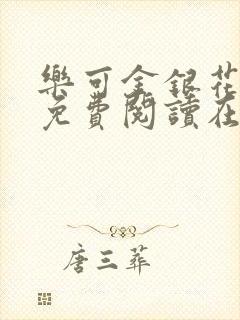 樂可金銀花
免費閱讀在
唐三葬